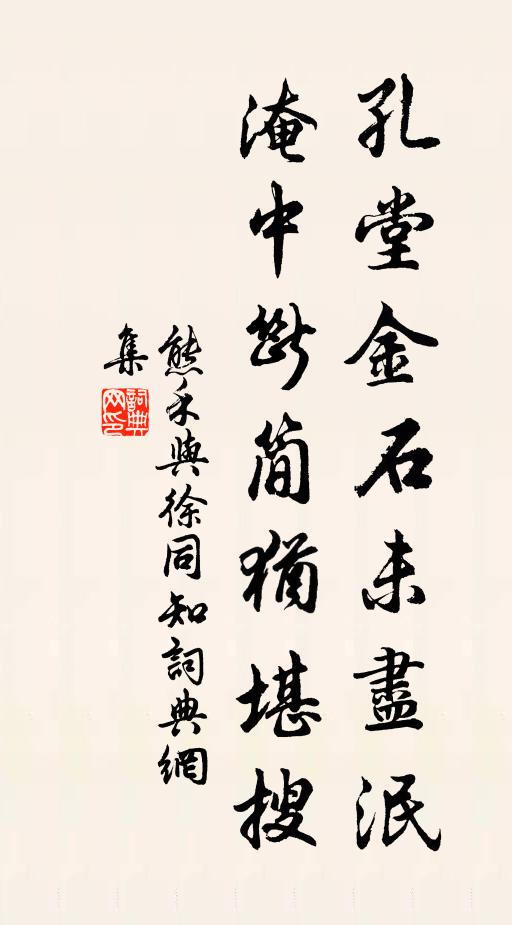 孔堂金石未盡泯
淹中斷簡猶堪搜
熊禾與徐同知詞典網
集
詞典
网印